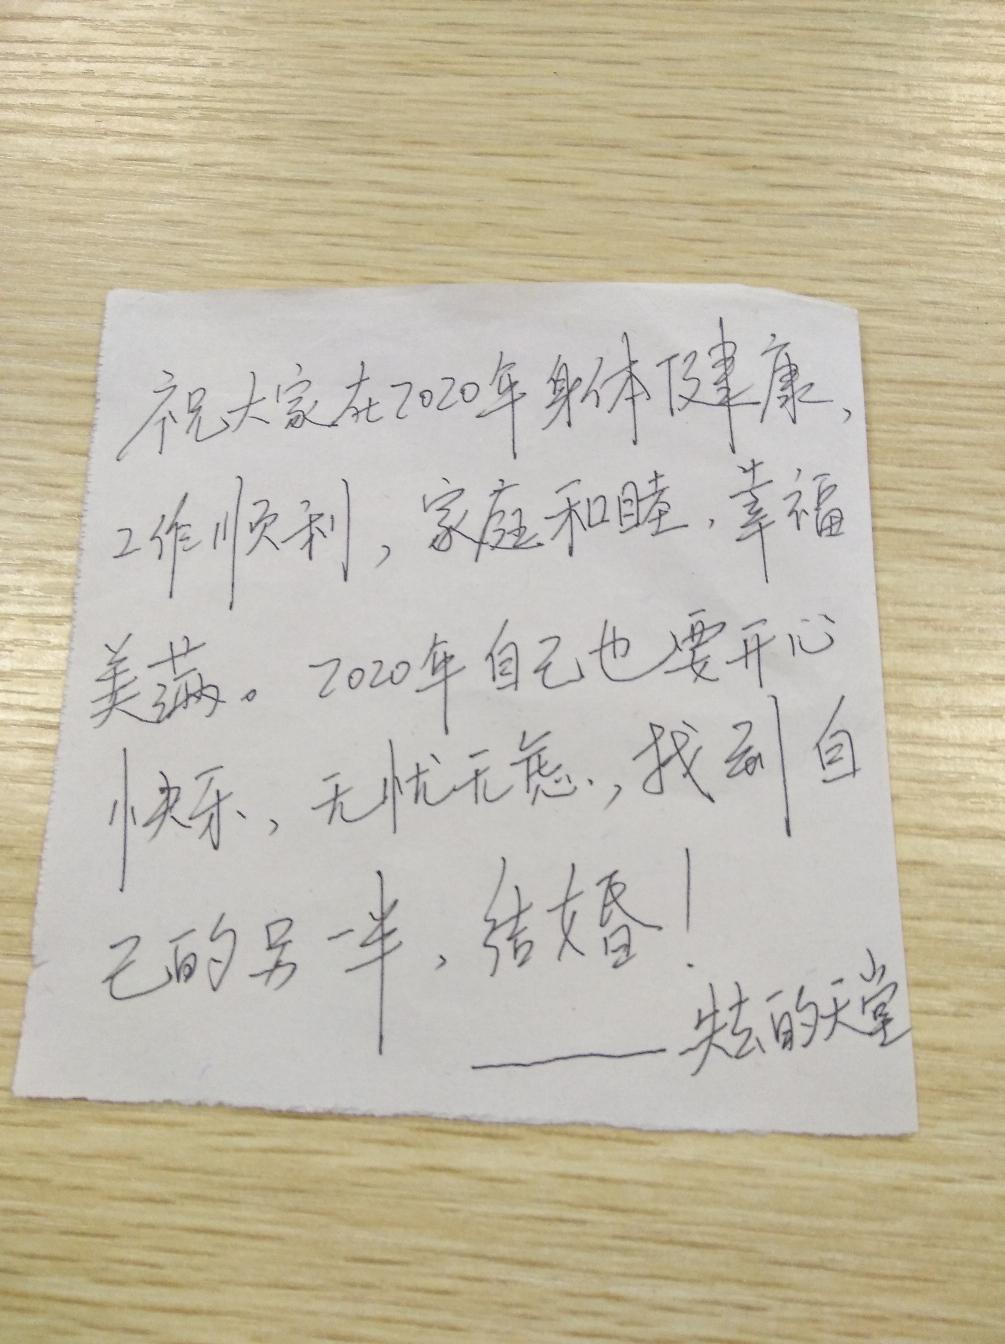 祝大家在2020年身体健康,
工作顺利,家庭和睦,幸福
美满。2020年自己也要开心
快乐,无忧无虑,找到自
己的另一半,结婚!
——失去的天堂